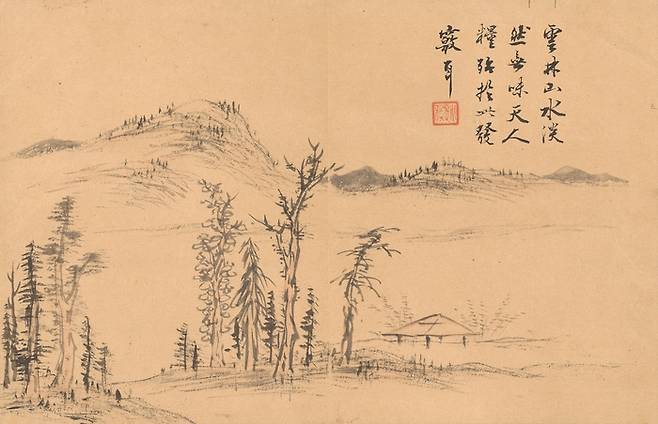 雲林山水淡
然無味天人
糧殆於此發
竅耳